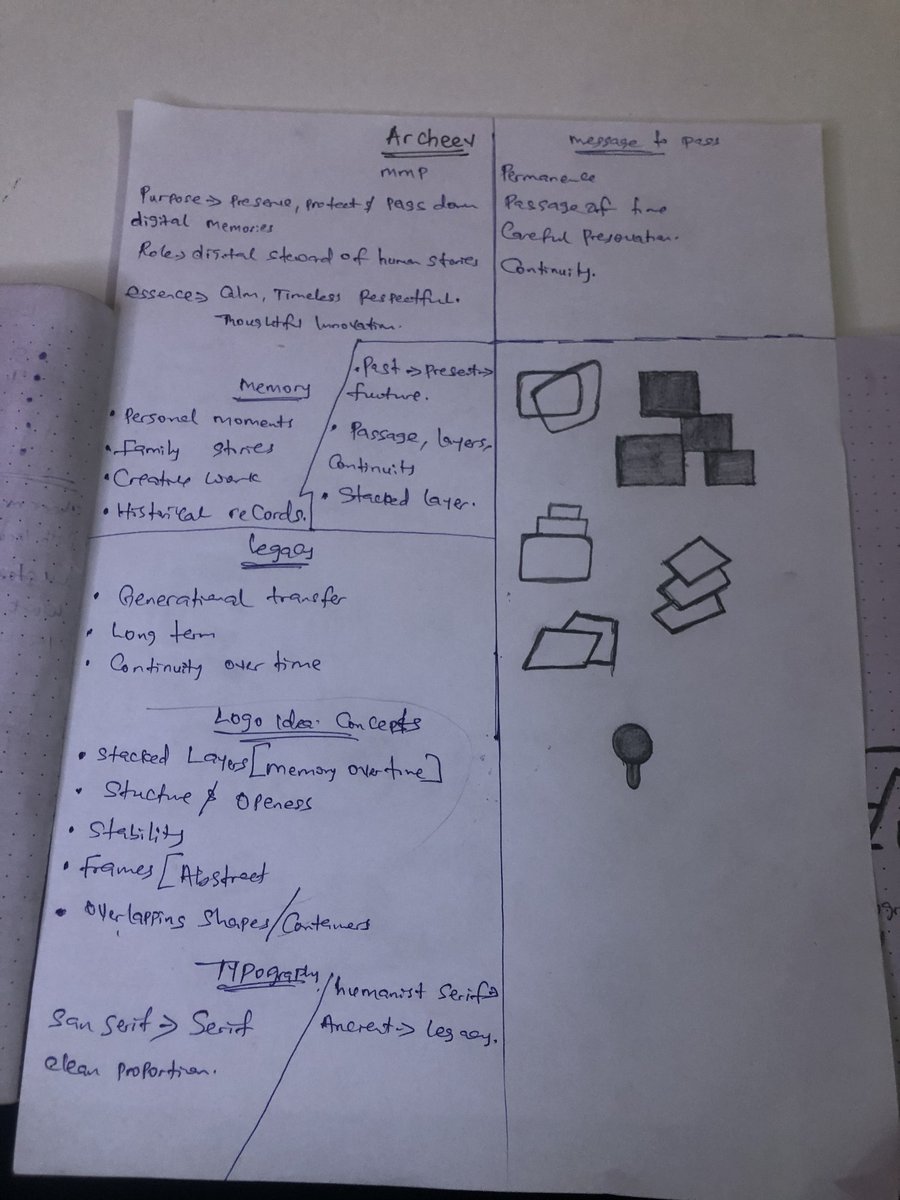 Archeev
mmp
Purpose → Preserve, protect & pass down
digital memories
Role → digital steward of human stories
essence → Calm, Timeless Respectful.
Thoughtful Innovation.
message to pass
Permanence
Passage of time
Careful Preservation.
Continuity.
Memory
• Personal moments
• Family stories
• Creative work
• Historical records.
• Past → Present →
fucture.
• Passage, layers,
Continuity
• Stacked layer.
Legacy
• Generational transfer
• Long term
• Continuity over time
Logo Idea. Concepts
• Stacked Layers [memory overtime]
• Stucture & Openess
• Stability
• Frames [Abstract
• Overlapping Shapes/Containers
Typography
San Serif → Serif
clean proportion.
humanist Serif →
Ancient → Legacy.